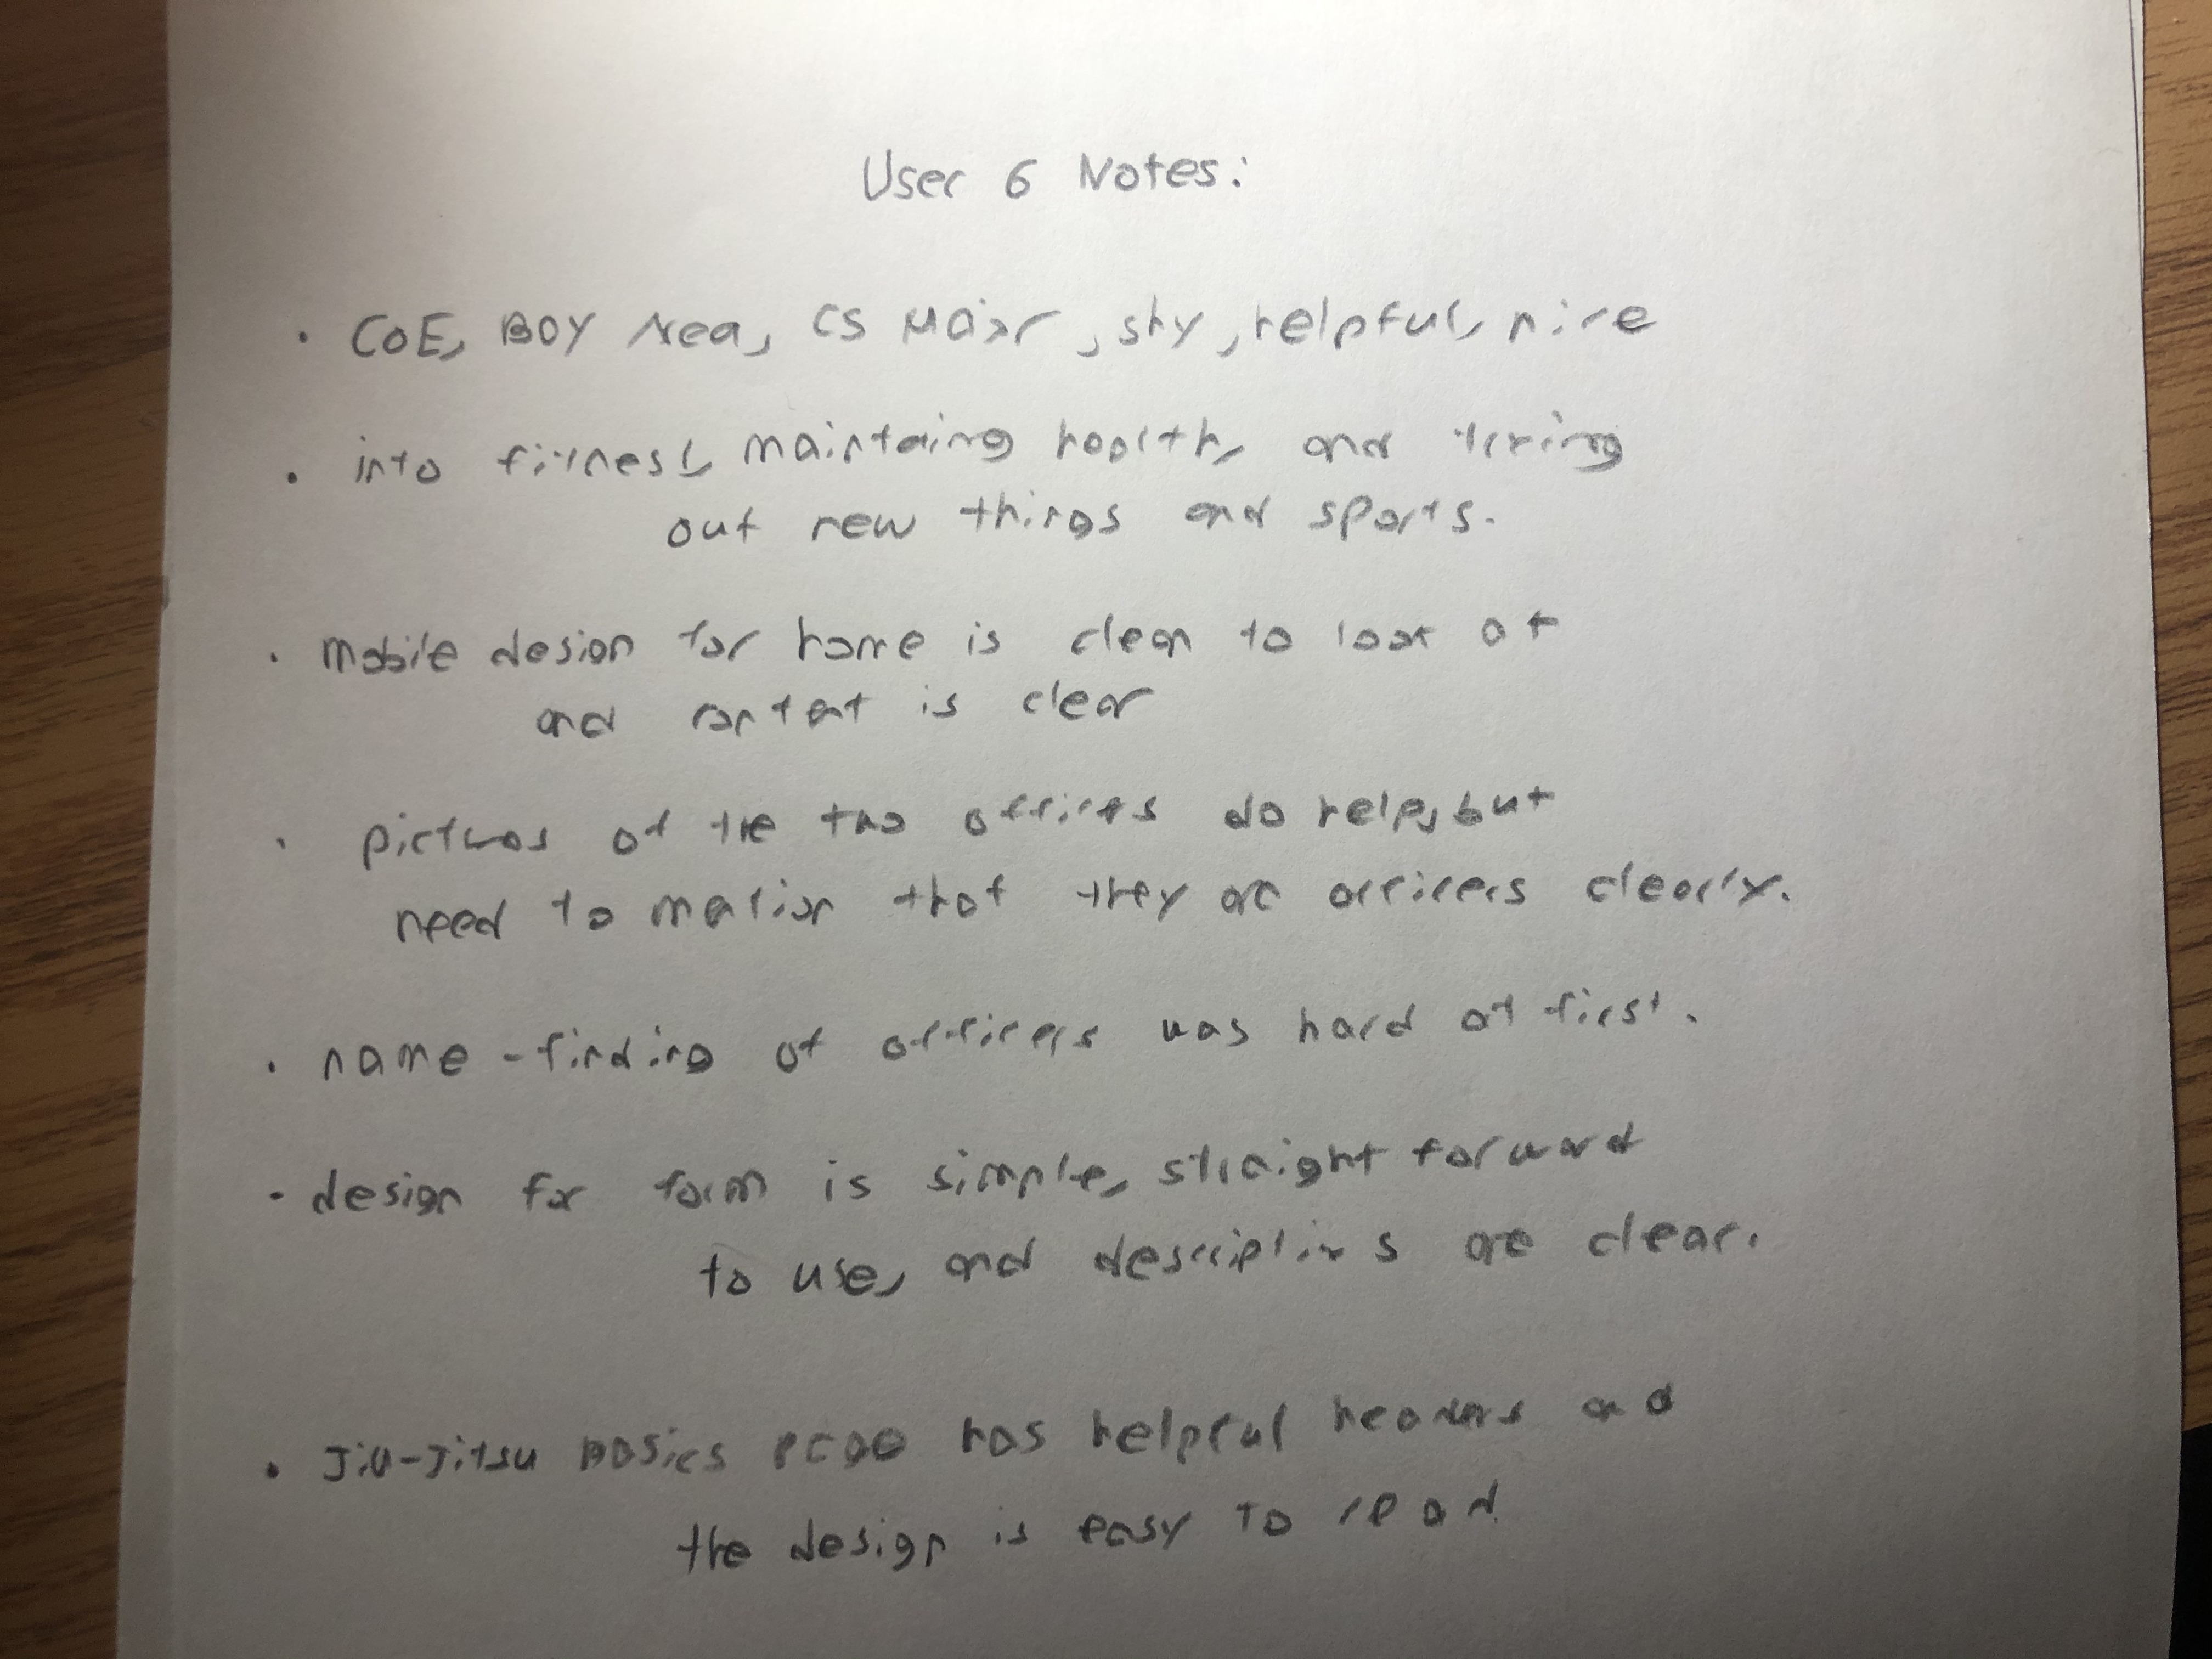 User 6 Notes:
• CoE, Boy Area, CS major, shy, helpful, nice
• into fitness, maintaing health, and trying
out new things and sports.
• mobile design for home is clean to look at
and content is clear
• pictures of the two officers do help, but
need to mention that they are officers clearly.
• name - finding of officers was hard at first.
- design for form is simple, straight forward
to use, and descriptions are clear.
• Jiu-Jitsu basics page has helpful headings and
the design is easy to read